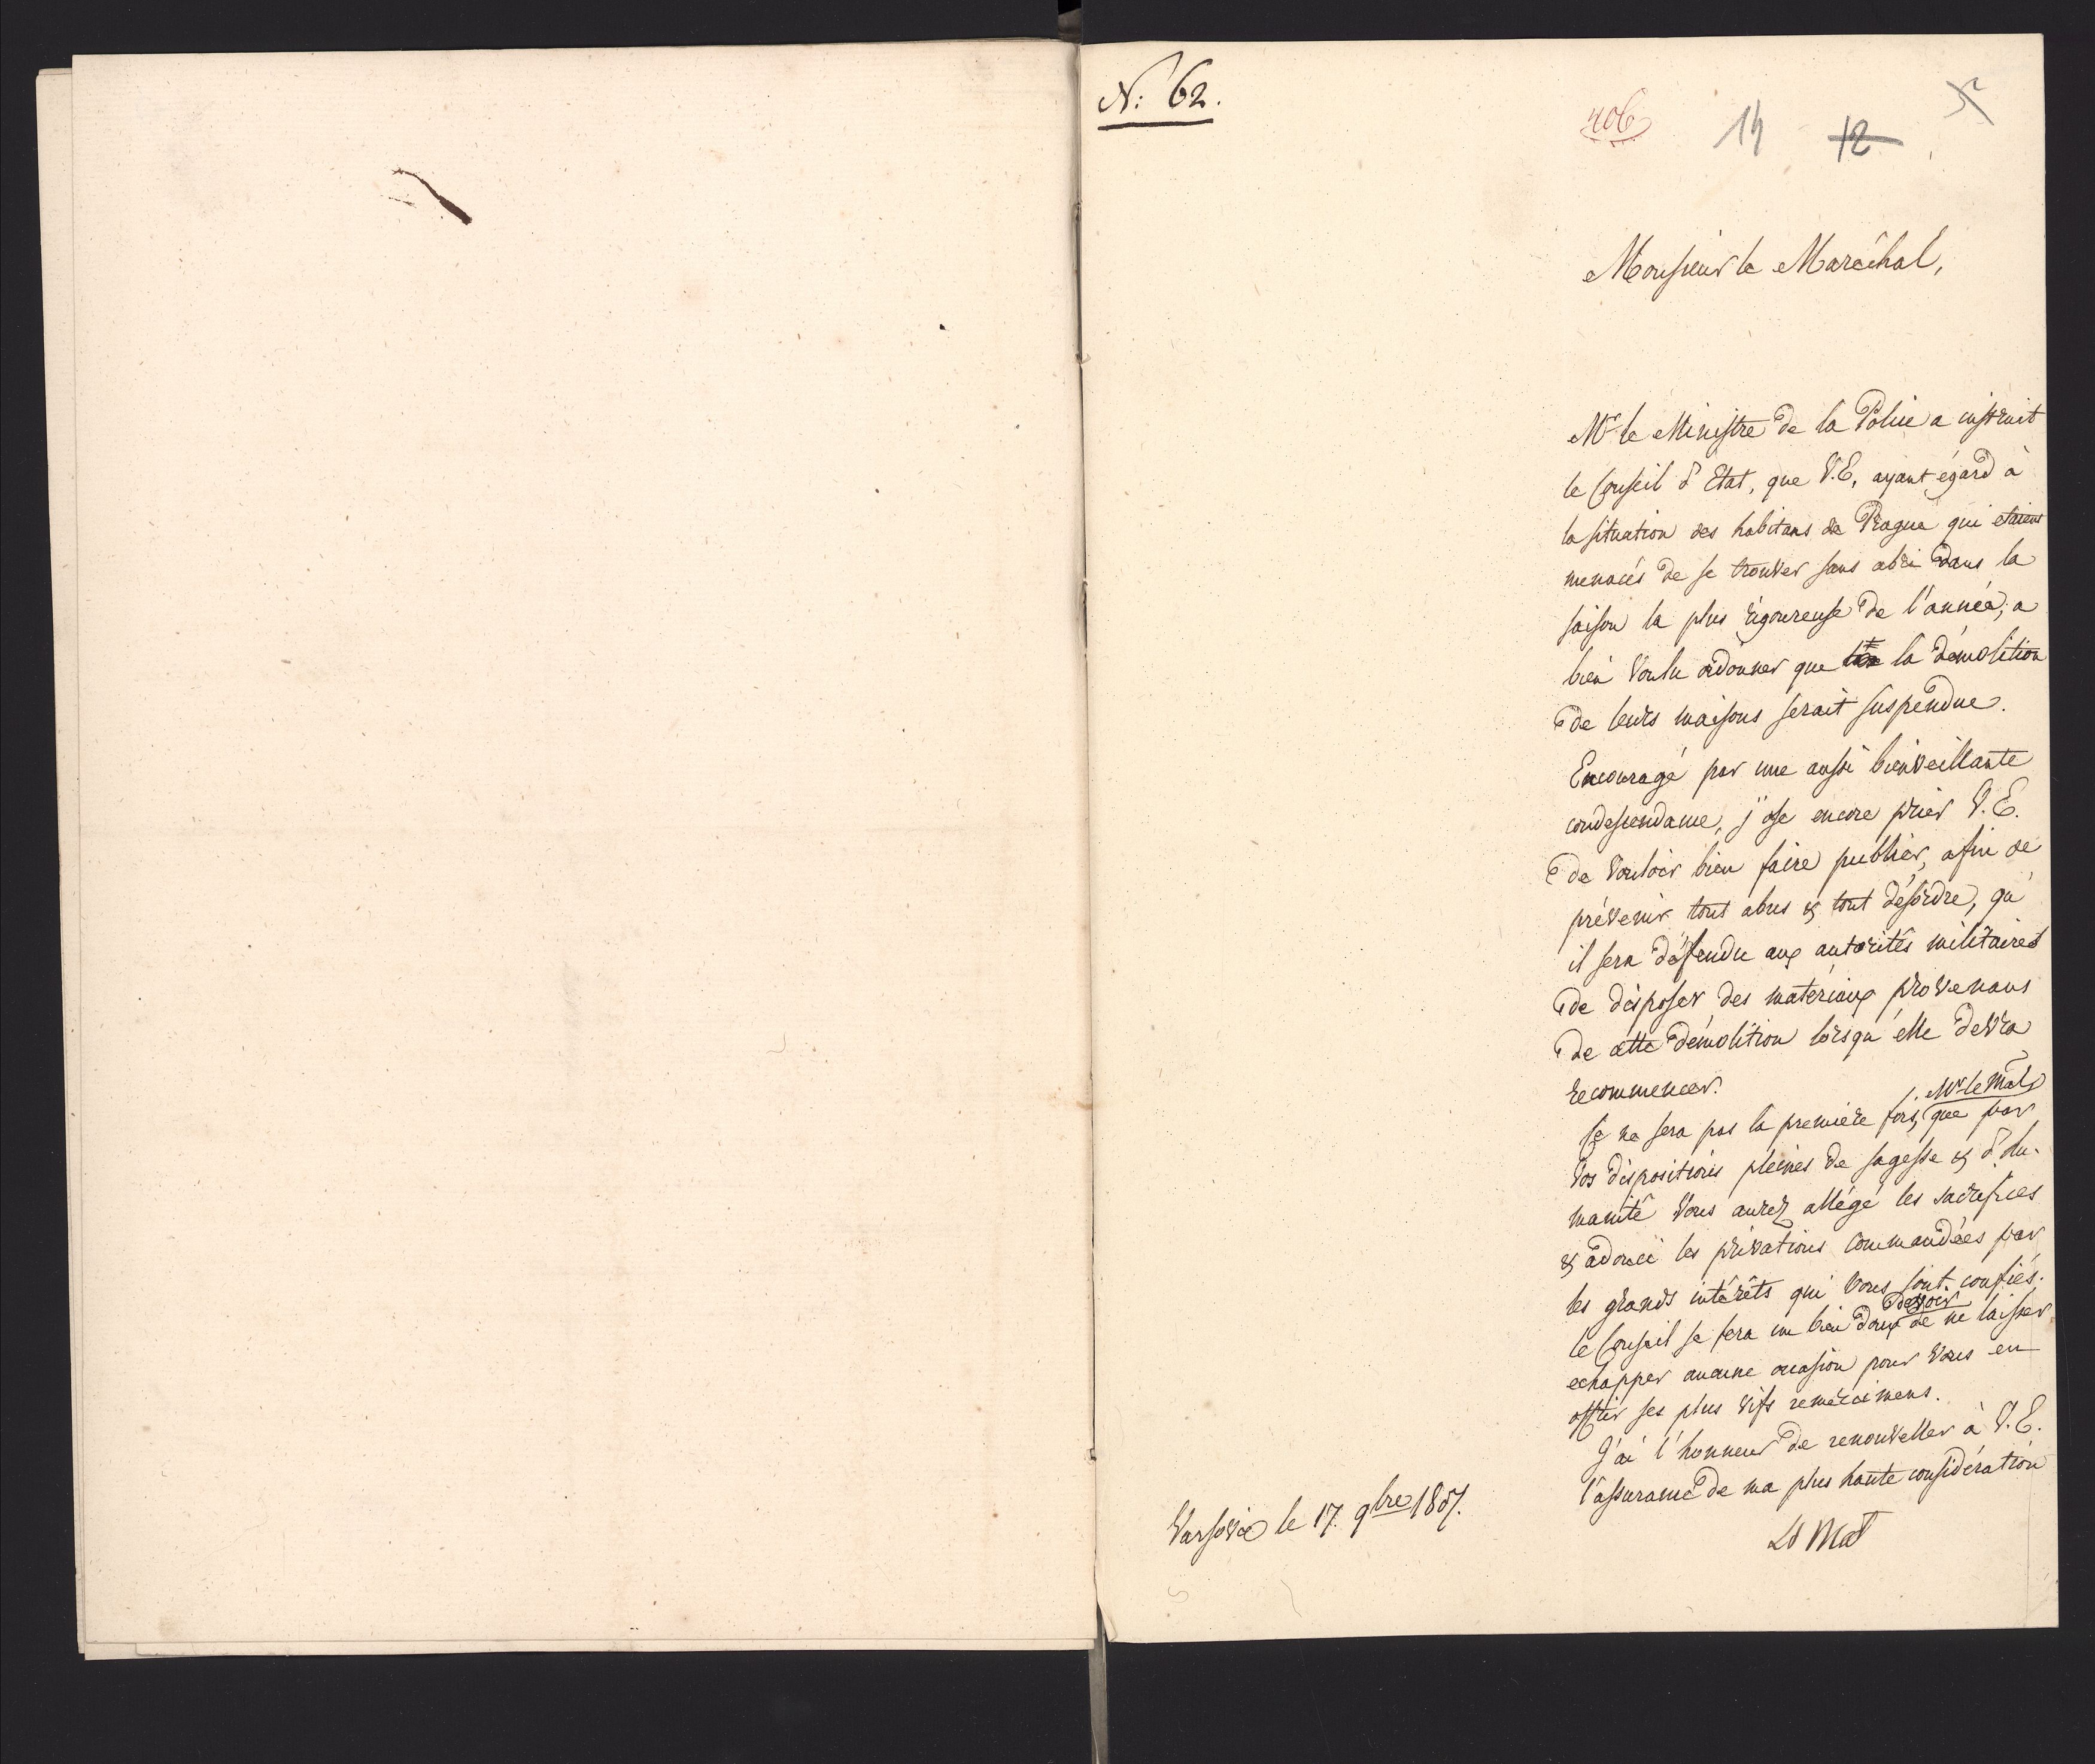 N: 62.
406 14 12
Monsieur le Maréchal,
Mr le Ministre de la Police a instruit
le Conseil d'Etat, que V.E. ayant égard à
la situation des habitans de Prague qui etaient
menacés de se trouver sans abri dans la
saison la plus rigoureuse de l'année, a
bien voulu ordonner que la démolition
de leurs maisons serait suspendue.
Encouragé par une aussi bienveillante
condescendance, j'ose encore prier V.E.
de vouloir bien faire publier, afin de
prévenir tout abus & tout désordre, qu'
il sera défendu aux autorités militaires
de disposer des materiaux provenans
de cette démolition lorsqu'elle devra
recommencer.
Ce ne sera pas la première fois, Mr le Mal, que par
vos dispositions pleines de sagesse & d'hu-
manité vous aurez allégé les sacrifices
& adouci les privations commandées par
les grands intérêts qui vous sont confiés.
Le Conseil se fera un bien doux devoir de ne laisser
echapper aucune occasion pour vous en
offrir ses plus vifs remercimens.
J'ai l'honneur de renouveller à V.E.
l'assurance de ma plus haute considération
Varsovie le 17. 9bre 1807.